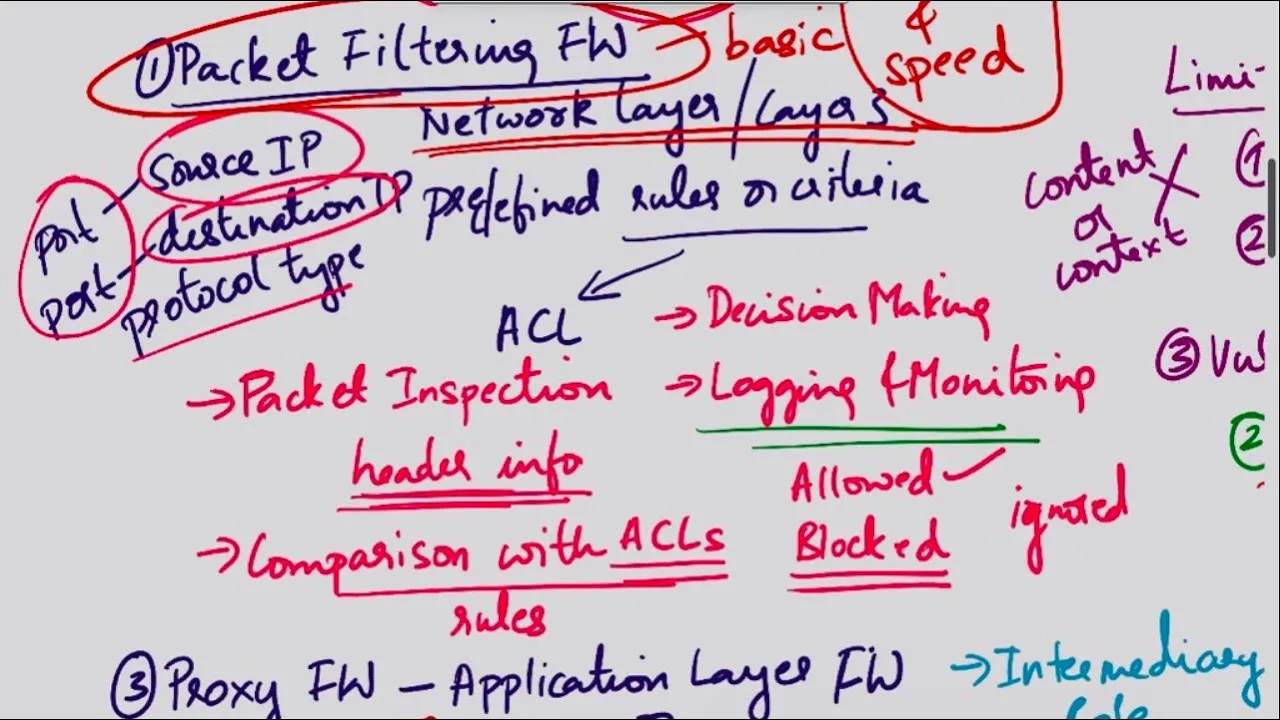 ① Packet Filtering FW — basic
&
speed
Network layer / Layer 3
source IP
destination IP
protocol type
port
port
predefined rules or criteria
ACL
→ Packet Inspection
header info
→ Comparison with ACLs
rules
→ Decision Making
→ Logging & Monitoring
Allowed ✓
Blocked
ignored
content
or
context
X
Limi-
①
②
③ Vul
②
③ Proxy FW – Application Layer FW
→ Intermediary